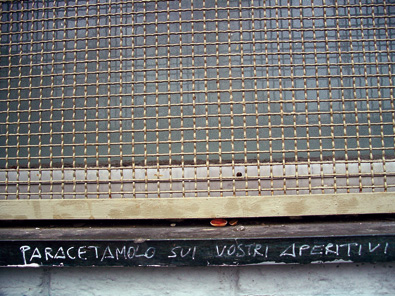 PARACETAMOLO SUI VOSTRI APERITIVI